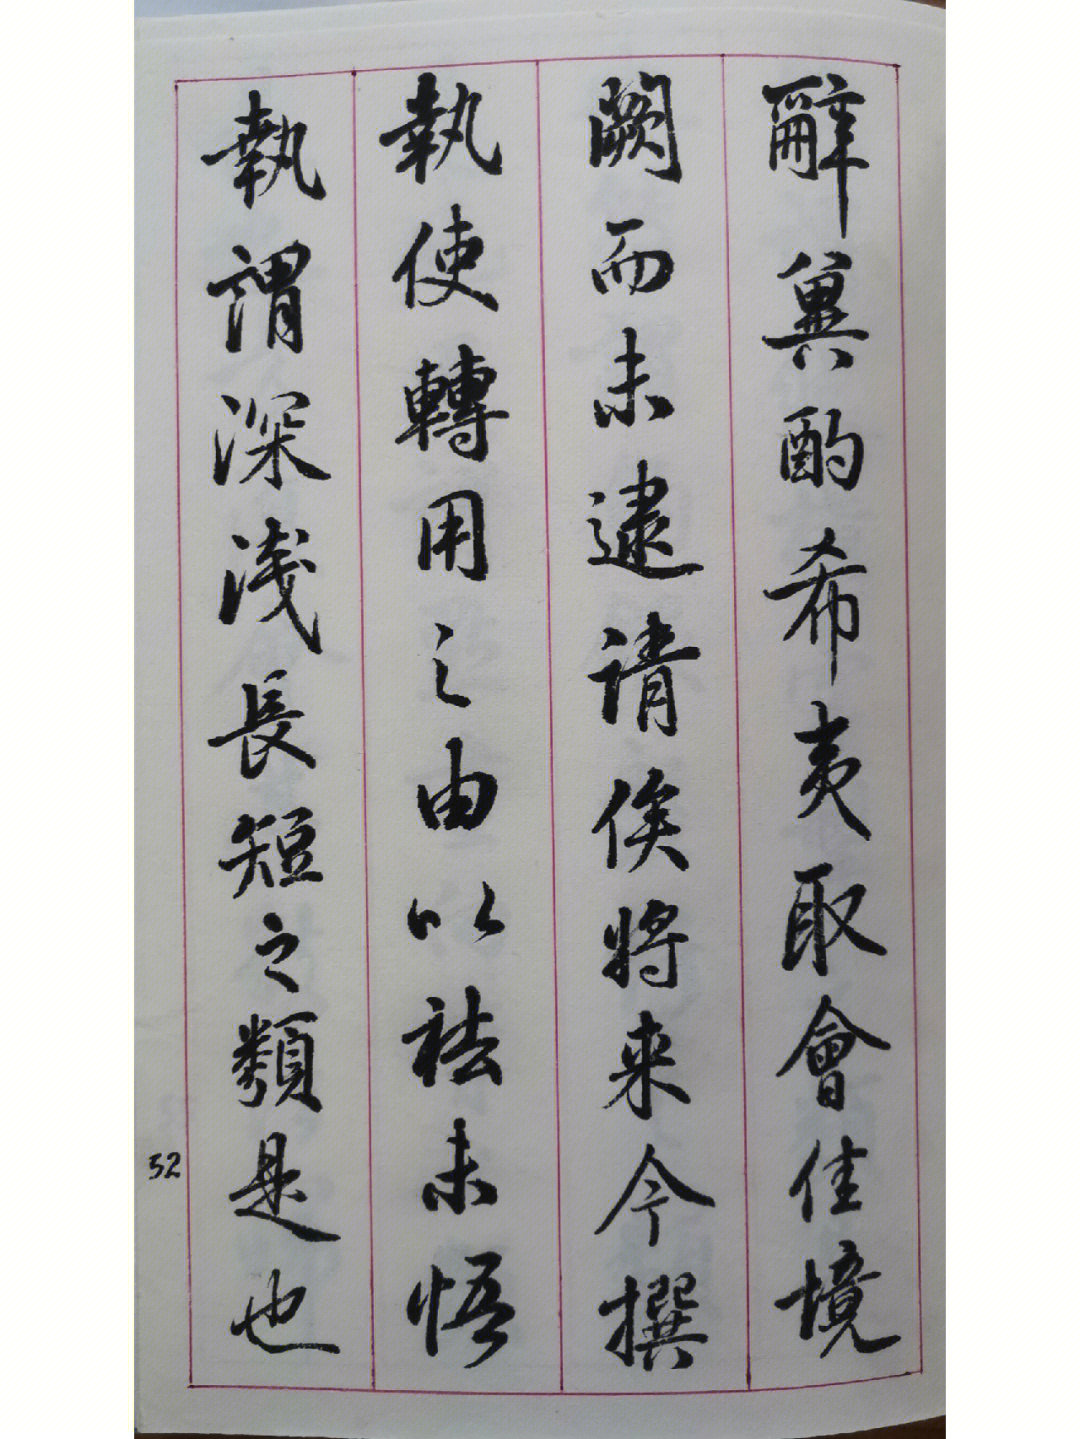 辭冀酌希夷取會佳境
闕而未逮請俟將来今撰
執使轉用之由以祛未悟
執謂深淺長短之類是也
52